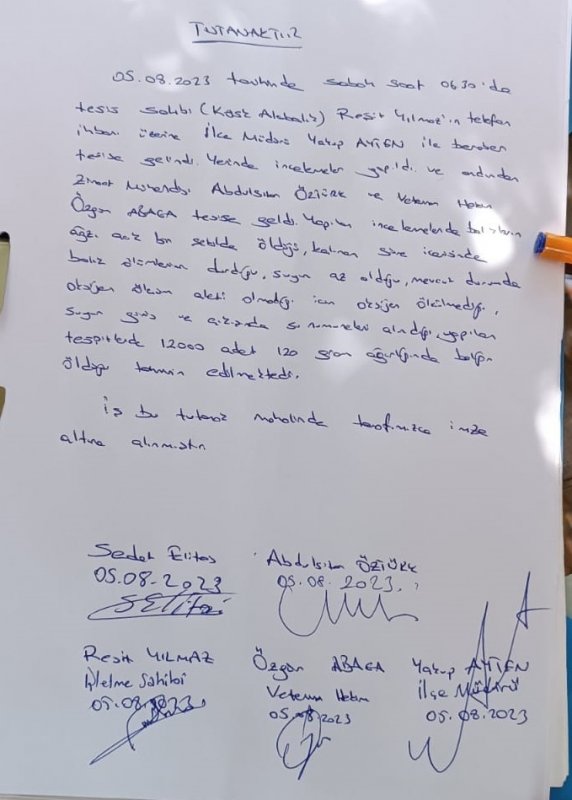 TUTANAKTIR
05.08.2023 tarihinde sabah saat 06:30'da
tesis sahibi (Kask Alabalık) Reşit Yılmaz'ın telefon
ihbarı üzerine İlçe Müdürü Yakup AYTEN ile beraber
tesise gelindi. Yerinde incelemeler yapıldı ve ardından
Ziraat Mühendisi Abdulsitar ÖZTÜRK ve Veteriner Hekim
Özgür ABAGA tesise geldi. Yapılan incelemelerde balıkların
ağzı açık bir şekilde öldüğü, kalınan süre içerisinde
balık ölümlerinin durduğu, suyun az olduğu, mevcut durumda
oksijen ölçüm aleti olmadığı için oksijen ölçülmediği,
suyun giriş ve çıkışında su numuneleri alındığı, yapılan
tespitlerde 12000 adet 120 gram ağırlığında balığın
öldüğü tahmin edilmektedir.
İş bu tutanak mahalinde tarafımızca imza
altına alınmıştır
Sedat Elitaş
05.08.2023
SElitaş
Abdulsitar ÖZTÜRK
05.08.2023
Reşit YILMAZ
İşletme Sahibi
05.08.2023
Özgür ABAGA
Veteriner Hekim
05.08.2023
Yakup AYTEN
İlçe Müdürü
05.08.2023